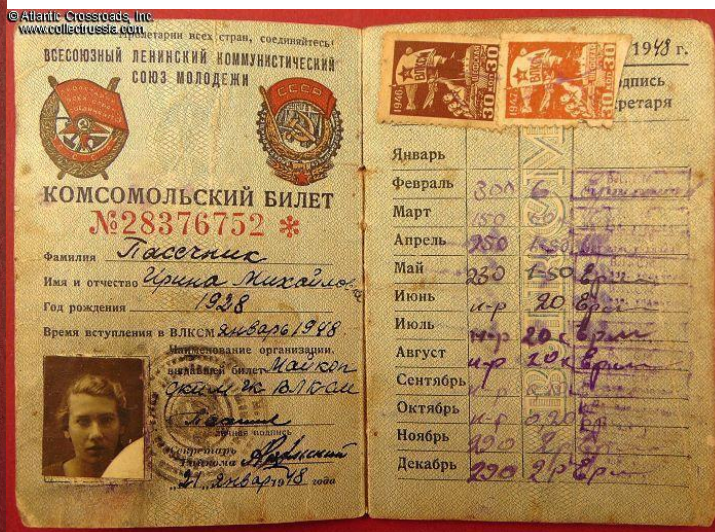 © Atlantic Crossroads, Inc.
www.collectrussia.com
Пролетарии всех стран, соединяйтесь!
ВСЕСОЮЗНЫЙ ЛЕНИНСКИЙ КОММУНИСТИЧЕСКИЙ
СОЮЗ МОЛОДЕЖИ
СССР
КОМСОМОЛЬСКИЙ БИЛЕТ
№28376752 *
Фамилия Пасечник
Имя и отчество Ирина Михайловна
Год рождения 1928
Время вступления в ВЛКСМ январь 1948
Наименование организации,
выдавшей билет Майкоп
ским гк ВЛКСМ
Личная подпись
Секретарь
райкома
"21" января 1948 года
1946 ВЛКСМ 30 КОП 30
1947 ВЛКСМ 30 КОП 30
1948 г.
подпись
секретаря
Январь
Февраль 300 6
Март 150
Апрель 250 1-50
Май 230 1-50 Ерм
Июнь н-р 20 к Ерм
Июль н-р 20 к Ерм
Август н-р 20 к Ерм
Сентябрь
Октябрь н-р 0,20
Ноябрь 290 2р
Декабрь 290 2р Ерм
ВЛКСМ